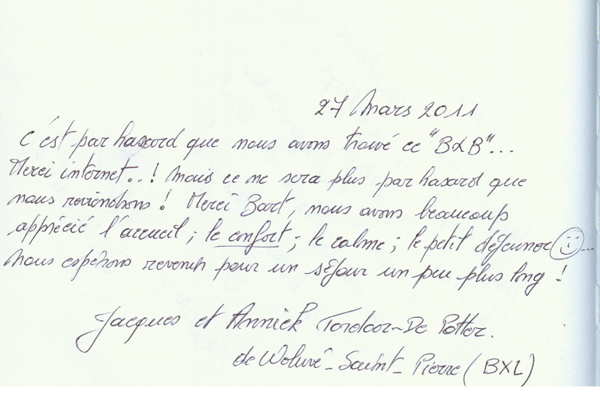 27 Mars 2011
C'est par hasard que nous avons trouvé ce "B&B"...
Merci internet..! Mais ce ne sera plus par hasard que
nous reviendrons! Merci Bart, nous avons beaucoup
apprécié l'accueil; le confort; le calme; le petit déjeuner ☺...
Nous espérons revenir pour un séjour un peu plus long!
Jacques et Annick Tordoor-De Potter.
de Woluwé-Saint-Pierre (BXL)